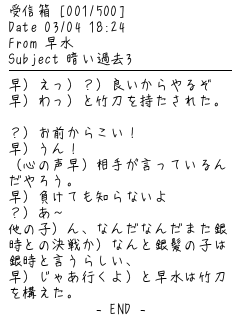 受信箱 [001/500]
Date 03/04 18:24
From 早水
Subject 暗い過去3
早）えっ）？）良いからやるぞ
早）わっ）と竹刀を持たされた。
？）お前からこい！
早）うん！
（心の声早）相手が言っているん
だやろう。
早）負けても知らないよ
？）あ~
他の子）ん、なんだなんだまた銀
時との決戦か）なんと銀髪の子は
銀時と言うらしい、
早）じゃあ行くよ）と早水は竹刀
を構えた。
- END -